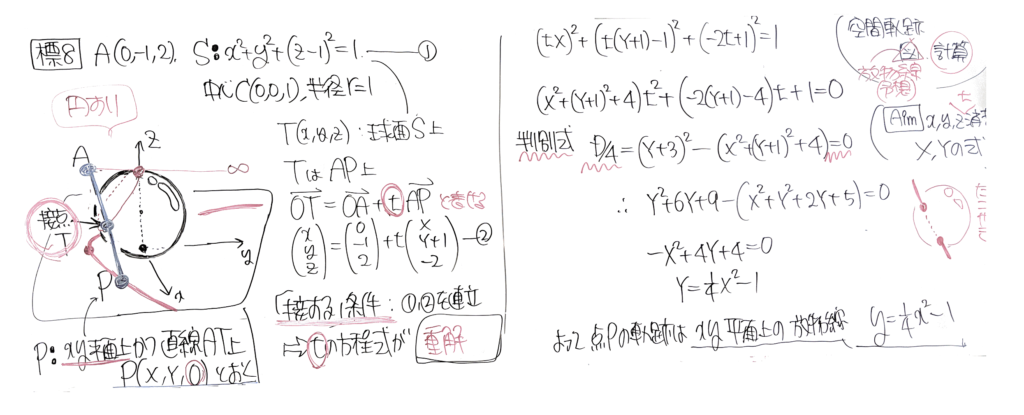 標8 A(0,-1,2), S: x²+y²+(z-1)²=1. ―①
中心C(0,0,1), 半径r=1
円あり
T(x,y,z): 球面S上
TはAP上
OT→=OA→+tAP→ と書ける
(x y z)=(0 -1 2)+t(X Y+1 -2) ―②
「接する」条件: ①,②を連立
⇒ tの方程式が 重解
A
z
∞
接点
T
y
x
P
P: xy平面上かつ直線AT上
P(X,Y,0)とおく
(tX)²+(t(Y+1)-1)²+(-2t+1)²=1
(X²+(Y+1)²+4)t²+(-2(Y+1)-4)t+1=0
判別式 D/4=(Y+3)²-(X²+(Y+1)²+4)=0
∴ Y²+6Y+9-(X²+Y²+2Y+5)=0
-X²+4Y+4=0
Y=¼X²-1
よって点Pの軌跡は xy平面上の放物線 y=¼x²-1
空間軌跡
図 計算
予想
t
Aim x,y,z消
X,Yの式